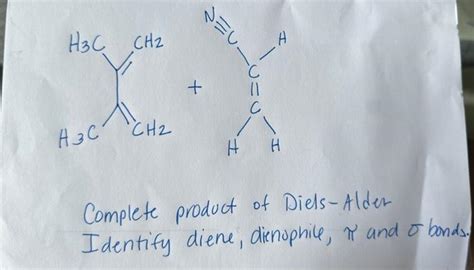 N≡C
H3C CH2 H
C
+ ||
C
H3C CH2
H H
Complete product of Diels-Alder
Identify diene, dienophile, π and σ bonds.